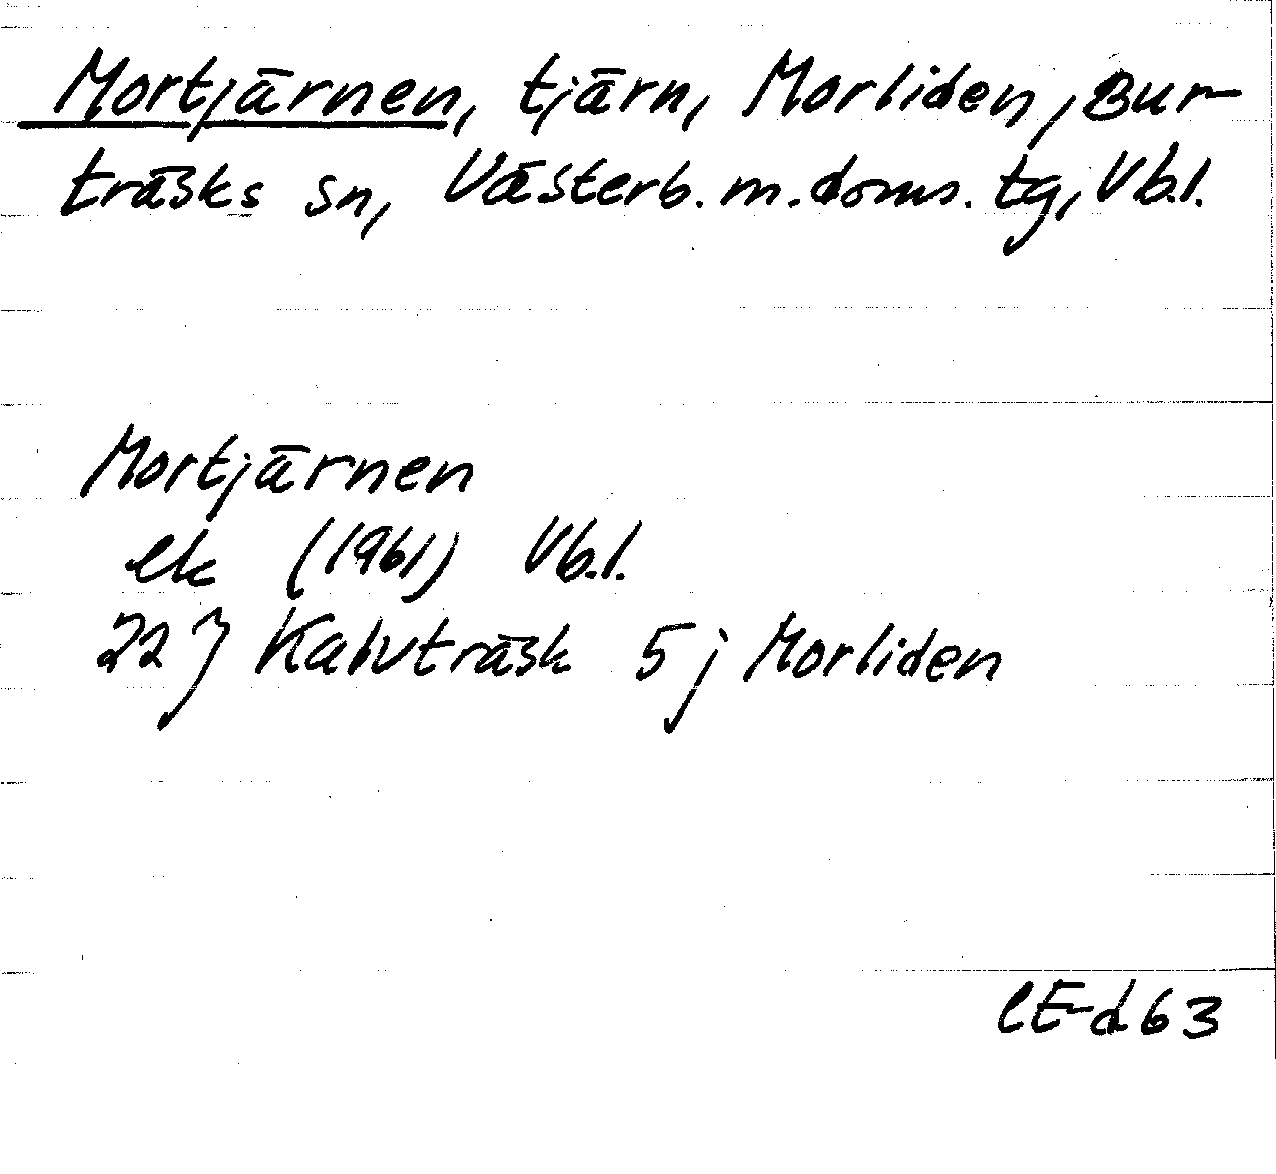 Mortjärnen, tjärn, Morliden, Bur-
träsks sn, Västerb. m. doms. tg, Vb.l.
Mortjärnen
ek (1961) Vb.l.
22 J Kalvträsk 5 j Morliden
CE-d 63